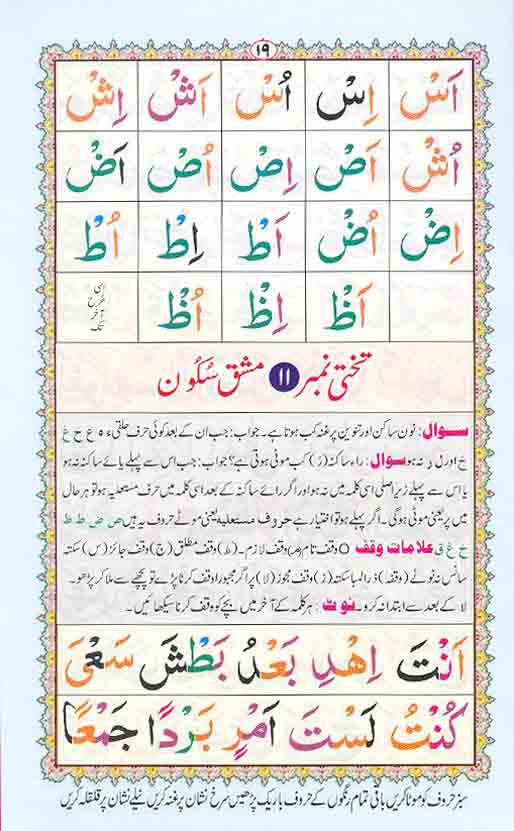 ١٩
اَسْ اِسْ اُسْ اَشْ اِشْ
اُشْ اَصْ اِصْ اُصْ اَضْ
اِضْ اُضْ اَطْ اِطْ اُطْ
اَظْ اِظْ اُظْ اسی طرح آخر تک
تختی نمبر ۱۱ مشق سُکُون
سوال: نون ساکن اور تنوین پر غنہ کب ہوتا ہے۔ جواب: جب ان کے بعد کوئی حرف حلقی ء ہ ع ح غ
خ اور ل ر نہ ہو سوال: راء ساکنہ (رْ) کب موٹی ہوتی ہے؟ جواب: جب اس سے پہلے یائے ساکنہ نہ ہو
یا اس سے پہلے زیر اصلی اسی کلمہ میں نہ ہو اور اگر رائے ساکنہ کے بعد اسی کلمہ میں حرف مستعلیہ ہو تو ہر حال
میں پر یعنی موٹی ہوگی۔ اگر پہلے ہو تو اختیار ہے حروف مستعلیہ یعنی موٹے حروف یہ ہیں ص ض ط ظ
خ غ ق علامات وقف ○ وقف تام (مـ) وقف لازم۔ (ط) وقف مطلق (ج) وقف جائز (س) سکتہ
سانس نہ ٹوٹے (وقفہ) ذرا لمبا سکتہ (ز) وقف مجوز (لا) پر اگر مجبوراً وقف کرنا پڑے تو پیچھے سے ملا کر پڑھو۔
لا کے بعد سے ابتدا نہ کرو۔ نوٹ: ہر کلمہ کے آخر میں بچے کو وقف کرنا سیکھائیں۔
اَنْتَ اِهْدِ بَعْدُ بَطْشَ سَعْىَ
كُنْتُ لَسْتَ اَمْرٍ بَرْدًا جَمْعًا
سبز حروف کو موٹا کریں باقی تمام رنگوں کے حروف باریک پڑھیں سرخ نشان پر غنہ کریں نیلے نشان پر قلقلہ کریں